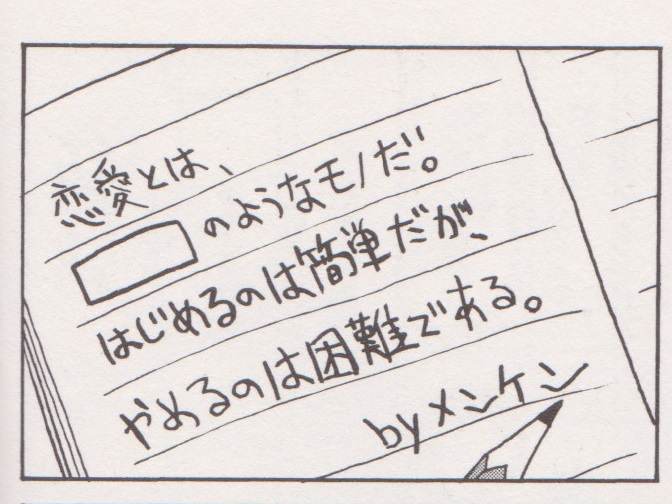 恋愛とは、
のようなモノだ。
はじめるのは簡単だが、
やめるのは困難である。
byメンケン